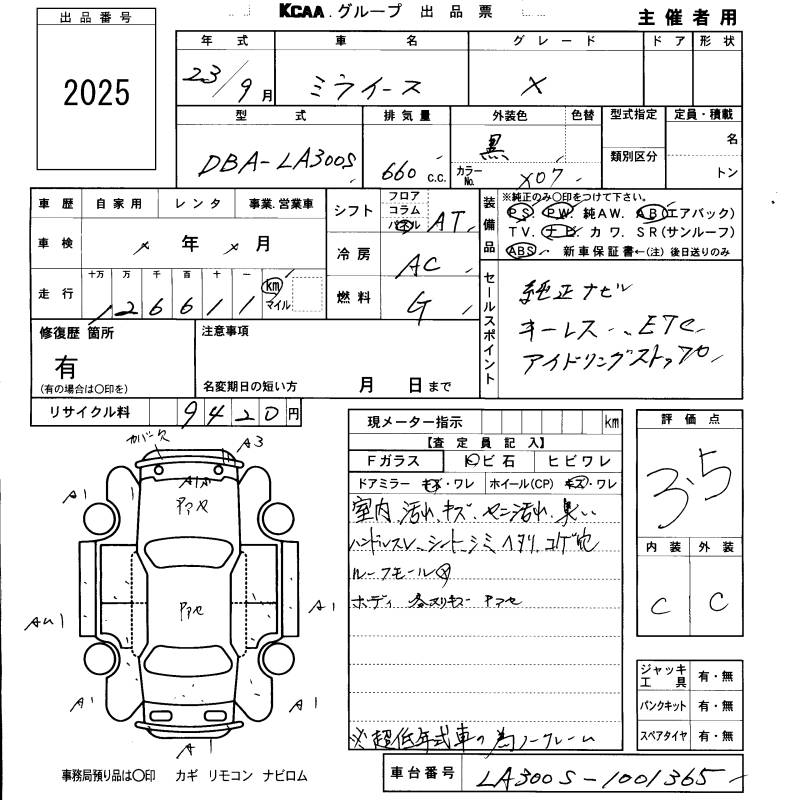 KCAA.グループ 出品票
主催者用
出品番号
2025
年式 車名 グレード ドア 形状
23/9月 ミライース X
型式 排気量 外装色 色替 型式指定 定員・積載
類別区分
名
トン
DBA-LA300S 660 c.c. 黒 カラーNo. X07
車歴 自家用 レンタ 事業.営業車
車検 × 年 × 月
走行 十万 万 千 百 十 一
126611 km マイル
シフト フロア コラム パネル AT
冷房 AC
燃料 G
装備品
※純正のみ〇印をつけて下さい。
PS. PW. 純AW. AB(エアバック)
TV. ナビ カワ. SR(サンルーフ)
ABS. 新車保証書←(注) 後日送りのみ
セールスポイント
純正ナビ
キーレス .. ETC
アイドリングストップ
修復歴 箇所
有
(有の場合は〇印を)
注意事項
名変期日の短い方 月 日まで
リサイクル料 9420円
現メーター指示 km
【査定員記入】
Fガラス トビ石 ヒビワレ
ドアミラー キズ・ワレ ホイール(CP) キズ・ワレ
室内 汚れ キズ 臭い
ハンドルスレ シートシミ ヘタリ コゲ穴
ルーフモール
ボディ
※超低年式車の為ノークレーム
車台番号 LA300S-1001365
評価点
3.5
内装 外装
C C
ジャッキ工具 有・無
パンクキット 有・無
スペアタイヤ 有・無
カバー欠
A3
A1
A1
AU1
A1
A1
A1
A1
事務局預り品は〇印 カギ リモコン ナビロム